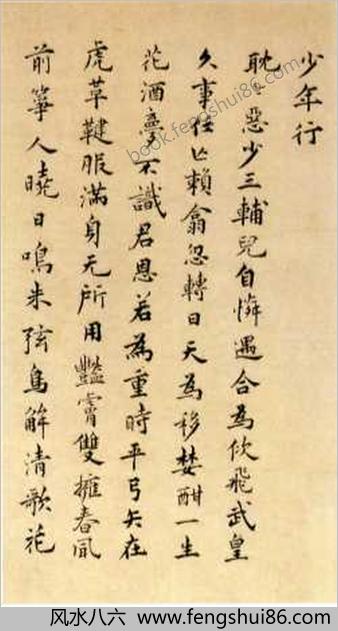 少年行
耽〻惡少三輔兒自憐遇合為佽飛武皇
久事任亡賴翕忽轉日天為移婪酣一生
花酒夢不識君恩若為重時平弓矢在
虎草鞬服滿身无所用豔霄雙擁春風
前箏人曉日鳴朱弦鳥解清歌花
book.fengshui86.com
风水八六 www.fengshui86.com